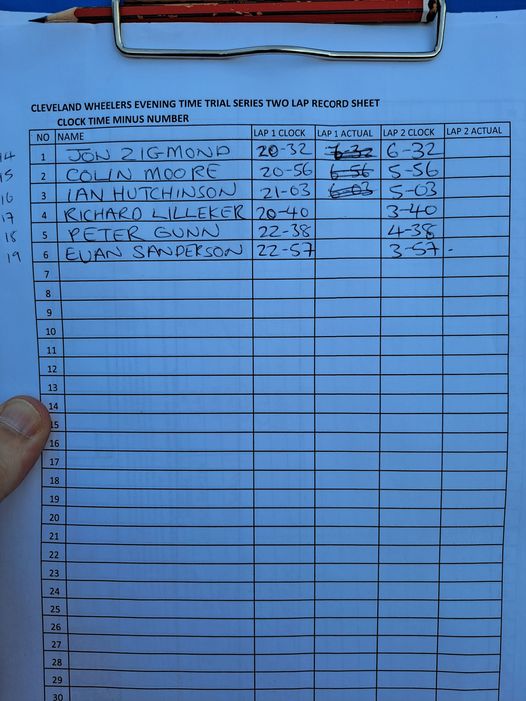 CLEVELAND WHEELERS EVENING TIME TRIAL SERIES TWO LAP RECORD SHEET
CLOCK TIME MINUS NUMBER
NO NAME LAP 1 CLOCK LAP 1 ACTUAL LAP 2 CLOCK LAP 2 ACTUAL
14 1 JON ZIGMOND 20-32 6-32
15 2 COLIN MOORE 20-56 6-56 5-56
16 3 IAN HUTCHINSON 21-03 6-03 5-03
17 4 RICHARD LILLEKER 20-40 3-40
18 5 PETER GUNN 22-38 4-38
19 6 EUAN SANDERSON 22-57 3-57-
7
8
9
10
11
12
13
14
15
16
17
18
19
20
21
22
23
24
25
26
27
28
29
30